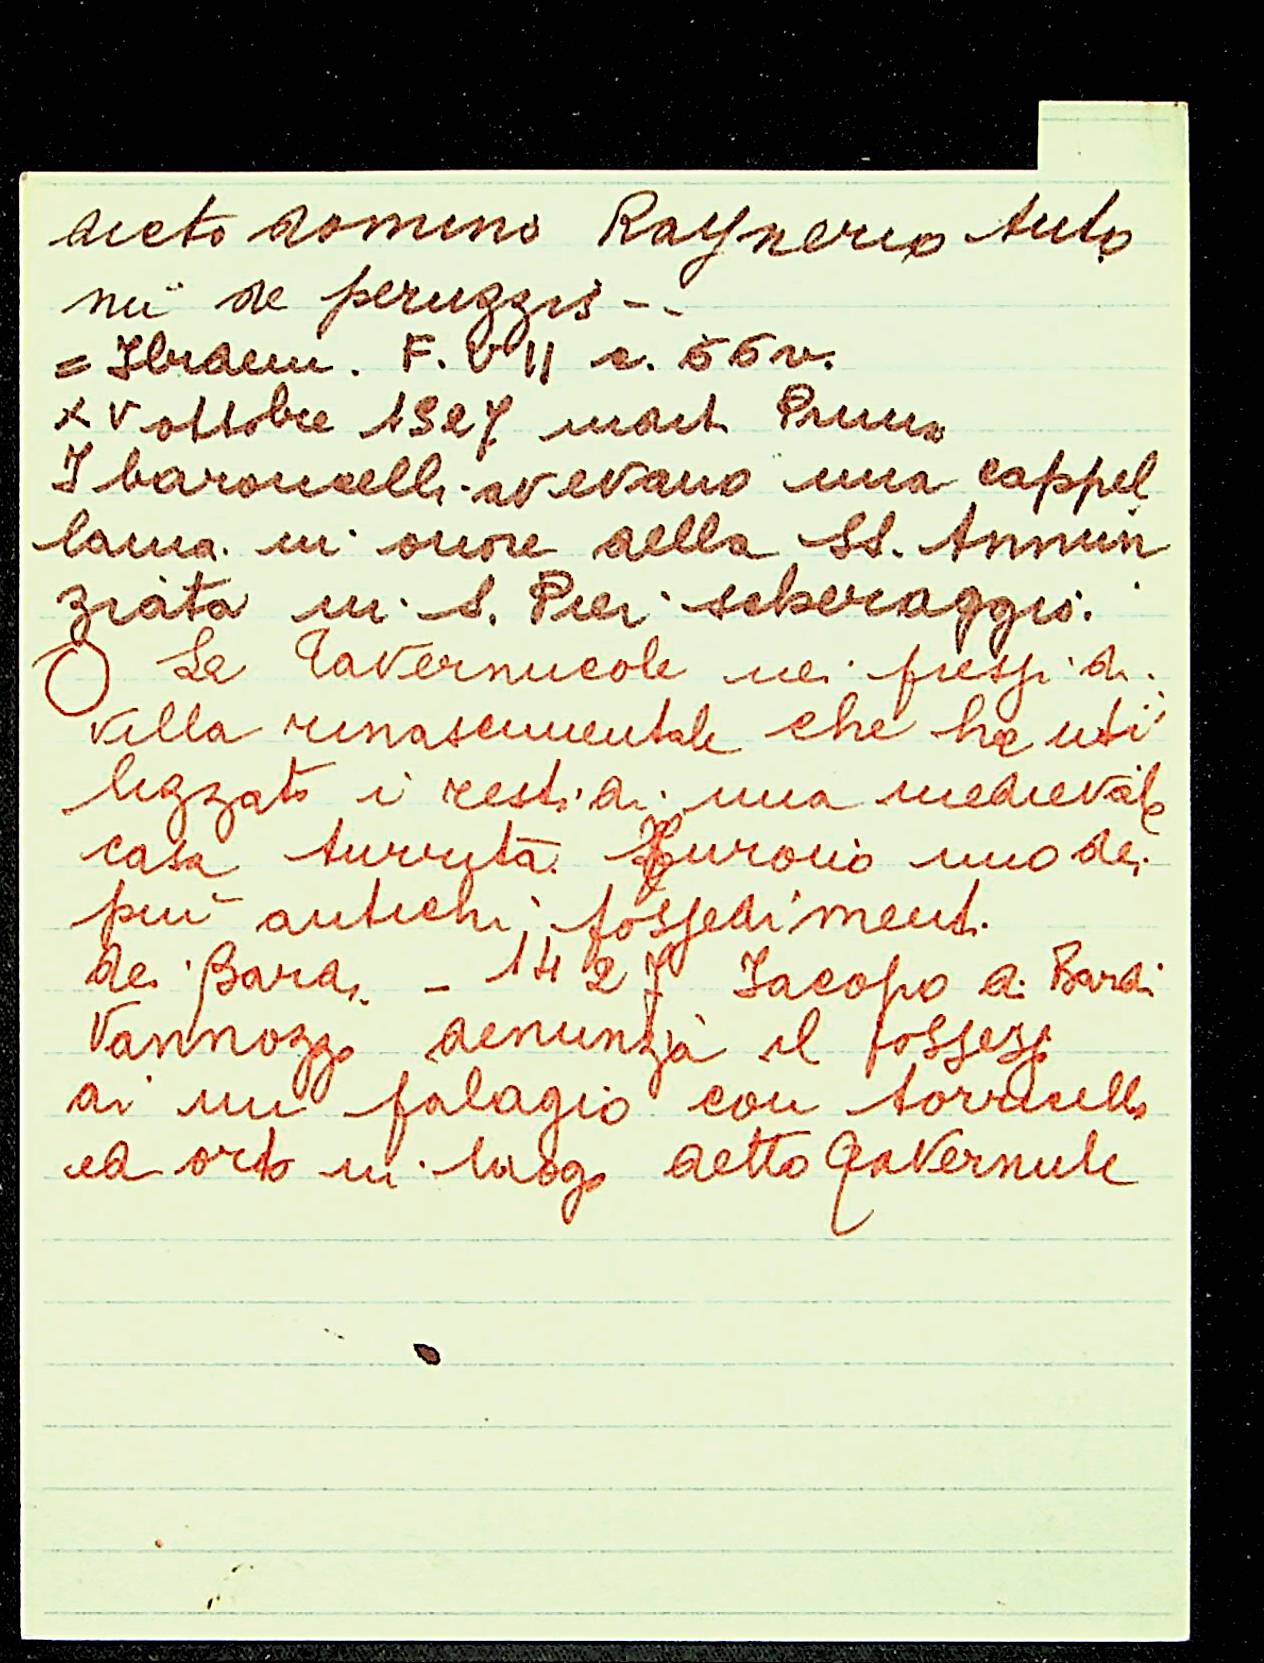 dicto domino Raynerio Anto
nii de peruzzis - -
= Ibidem. F. VII c. 55v.
XV ottobre 1327 indict. Prima
I baroncelli avevano una cappel
lania in onore della SS. Annun
ziata in S. Pier scheraggio.
Le Tavernucole nei pressi di
villa rinascimentale che ha uti
lizzato i resti di una medievale
casa turrita. Furono uno dei
più antichi possedimenti
dei Bardi. - 1427 Jacopo di Bardi
Vannozzo denunzia il possesso
di un palagio con torricella
ed orto in luogo detto Tavernule